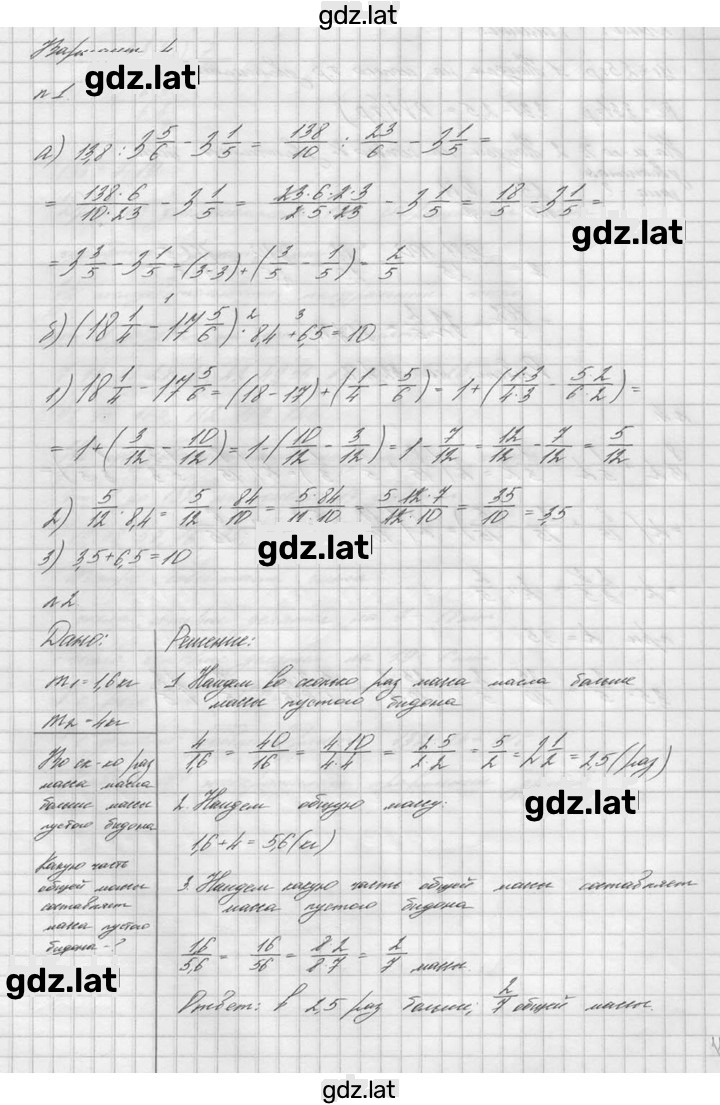 gdz.lat
Вариант 4
gdz.lat
n 1.
а) 13,8 : 3 5/6 - 3 1/5 = 138/10 : 23/6 - 3 1/5 =
= 138·6/10·23 - 3 1/5 = 23·6·2·3/2·5·23 - 3 1/5 = 18/5 - 3 1/5 =
gdz.lat
= 3 3/5 - 3 1/5 = (3-3)+(3/5 - 1/5) = 2/5
б) (18 1/4 -¹ 17 5/6) ·² 8,4 +³ 6,5 = 10
1) 18 1/4 - 17 5/6 = (18-17)+(1/4 - 5/6) = 1+(1·3/4·3 - 5·2/6·2) =
= 1+(3/12 - 10/12) = 1-(10/12 - 3/12) = 1 - 7/12 = 12/12 - 7/12 = 5/12
2) 5/12 · 8,4 = 5/12 · 84/10 = 5·84/12·10 = 5·12·7/12·10 = 35/10 = 3,5
gdz.lat
3) 3,5+6,5=10
n 2.
Дано:
m₁ = 1,6 кг
m₂ = 4 кг
Во ск-ко раз
масса масла
больше массы
пустого бидона
Какую часть
общей массы
составляет
масса пустого
бидона -?
Решение:
1. Найдем во сколько раз масса масла больше
массы пустого бидона
4/1,6 = 40/16 = 4·10/4·4 = 2·5/2·2 = 5/2 = 2 1/2 = 2,5 (раз)
gdz.lat
2. Найдем общую массу:
1,6+4=5,6 (кг)
3. Найдем какую часть общей массы составляет
масса пустого бидона
1,6/5,6 = 16/56 = 8·2/8·7 = 2/7 массы.
gdz.lat
Ответ: в 2,5 раз больше; 2/7 общей массы.
gdz.lat